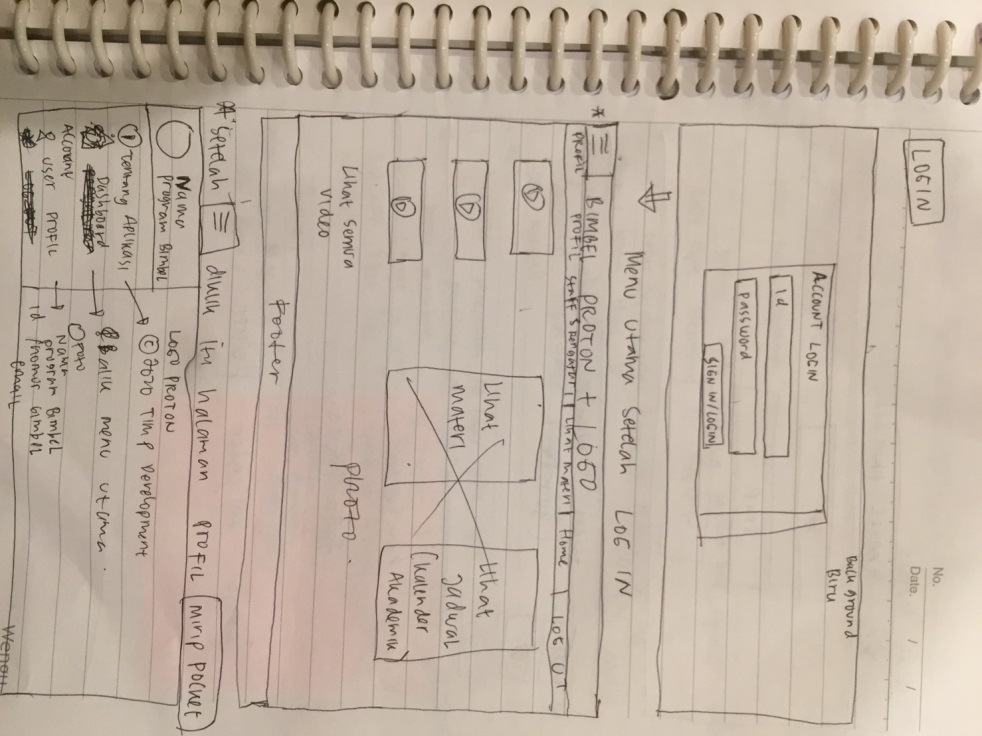 No.
Date. / /
LOGIN
Back ground
Biru
ACCOUNT LOGIN
Id
Password
SIGN IN/LOGIN
Menu utama Setelah LOG IN
* BIMBEL PROTON + LOGO
PROFIL
profil staff & pengajar | Lihat materi | Home | LOG UT
Lihat
materi
Lihat
Jadwal
(Kalender
Akademik)
Lihat semua
video
photo.
Footer
* Setelah diklik itu halaman profil mirip pocket
Nama
Program Bimbel
LOGO PROTON
Tentang Aplikasi → © 2020 TIMP Development
Dashboard → balik menu utama.
Account
& user profil → foto
Nama
program Bimbel
Id /nomor bimbel
email